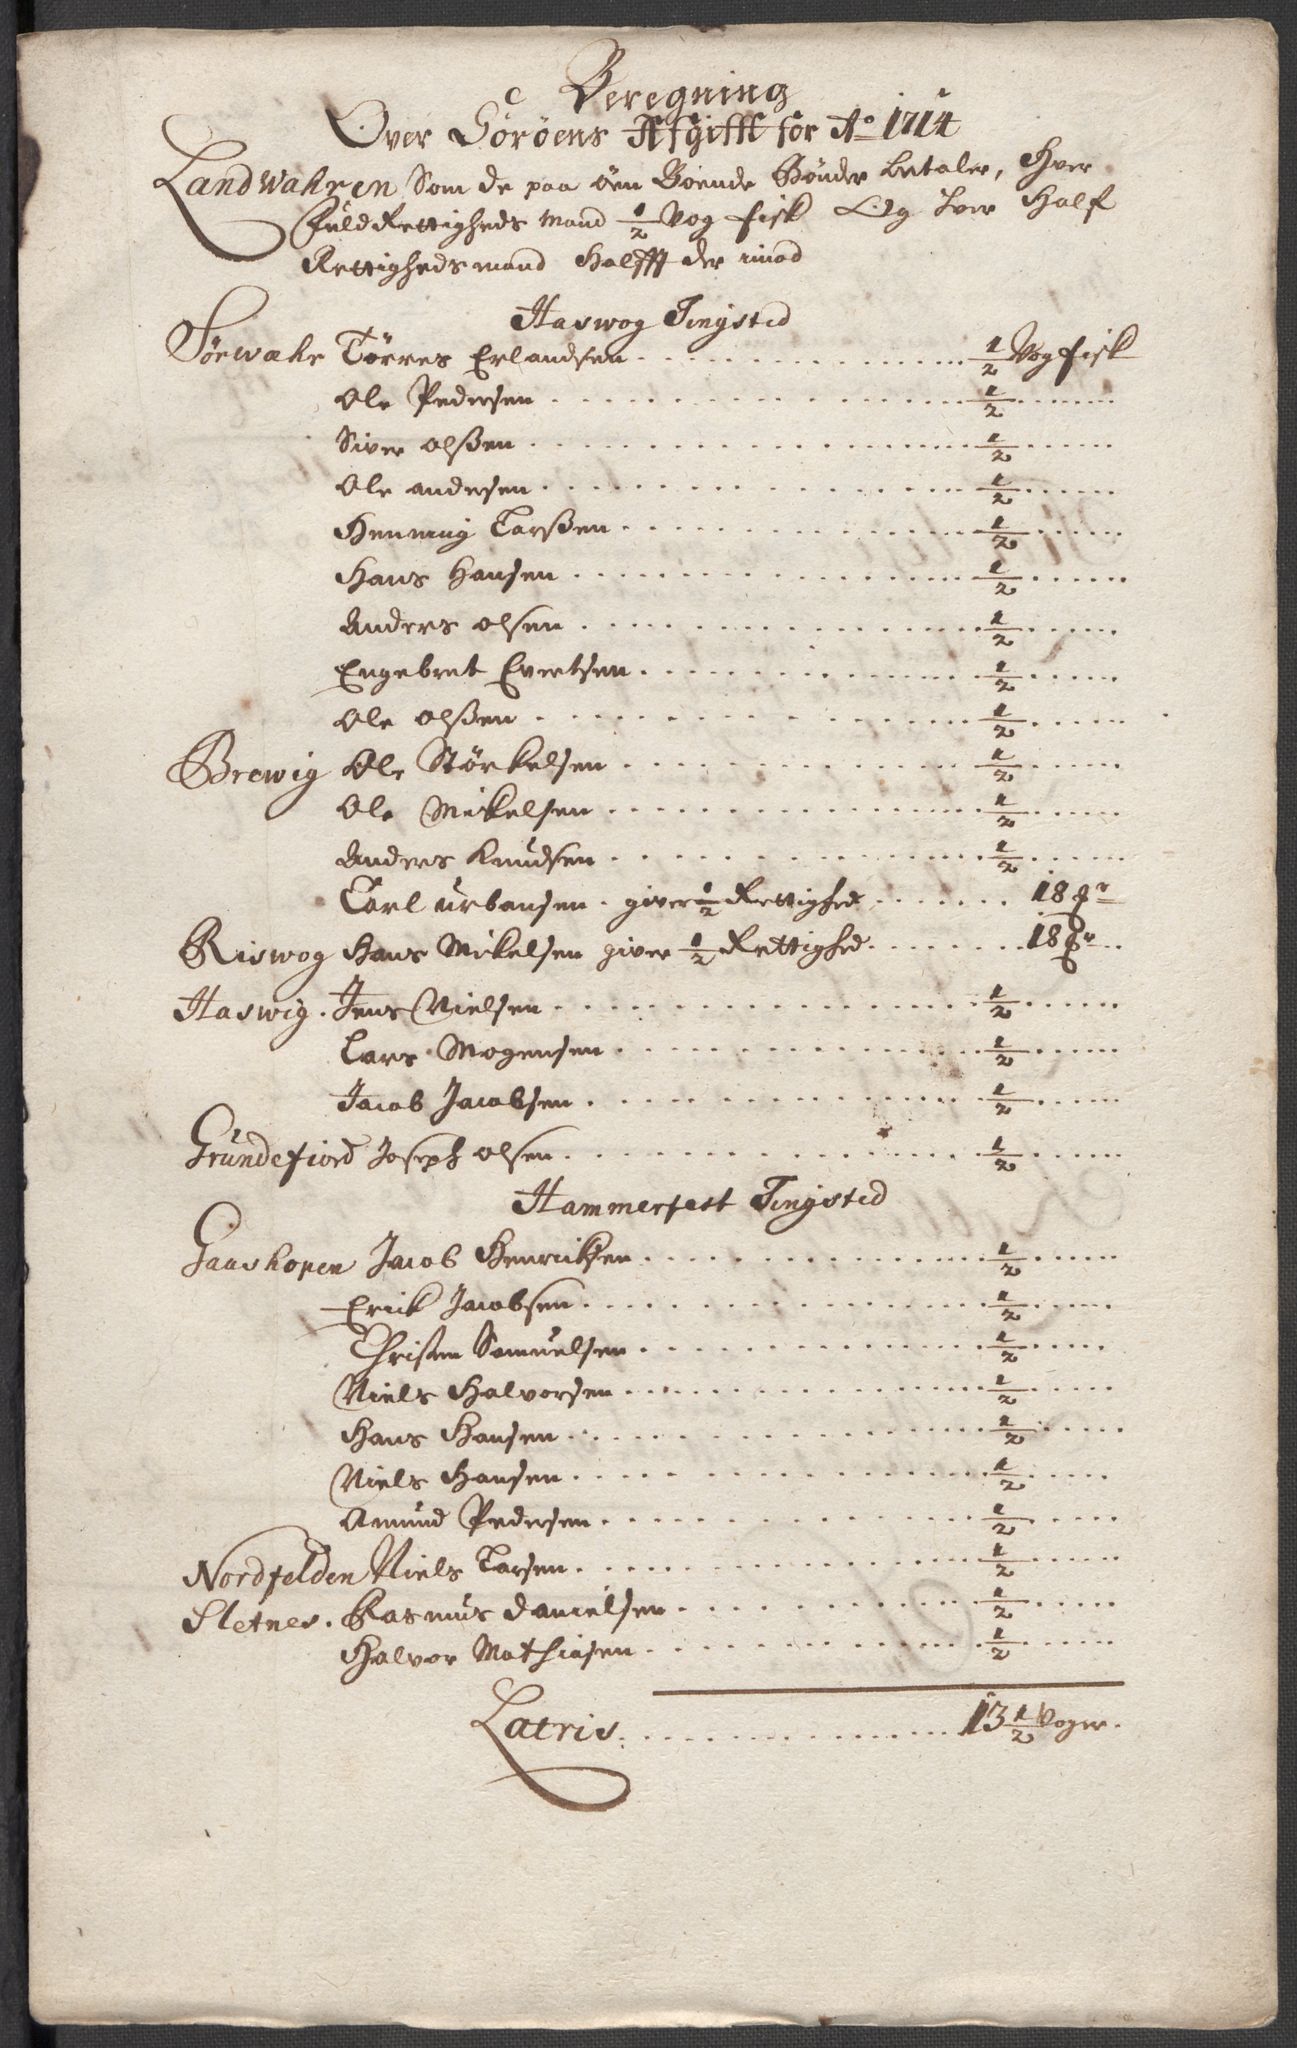 Beregning
Over Sørøens Afgifft for Ao 1714
Landwahren Som de paa öen Boende Bönder betaler, Hver
Fuld Rettigheds Mand 1/2 Vog fisk Og hver Half
Rettighedsmand Halfft der imod
Haswog Tingsted
Sørwahr Törres Erlandsen 1/2 Vog fisk
Ole Pedersen 1/2
Siver olßen 1/2
Ole andersen 1/2
Henning Larßen 1/2
Hans Hansen 1/2
Anders olsen 1/2
Engebret Evertsen 1/2
Ole olßen 1/2
Brewig Ole Störkelsen 1/2
Ole Mikelsen 1/2
Anders Knudsen 1/2
Carl urbansen . giver 1/2 Rettighed 18
Riswog Hans Mikelsen giver 1/2 Rettighed 18
Haswig . Jens Nielsen 1/2
Lars Mogensen 1/2
Jacob Jacobsen 1/2
Grundefiord Joseph olsen 1/2
Hammerfest Tingsted
Gaashopen Jacob Henricksen 1/2
Erick Jacobsen 1/2
Christen Samuelsen 1/2
Niels Halvorsen 1/2
Hans Hansen 1/2
Niels Hansen 1/2
Amund Pedersen 1/2
Nordfelden Niels Larsen 1/2
Sletnes . Rasmus Danielsen 1/2
Halvor Mathiasen 1/2
Latris 13 1/2 Voger